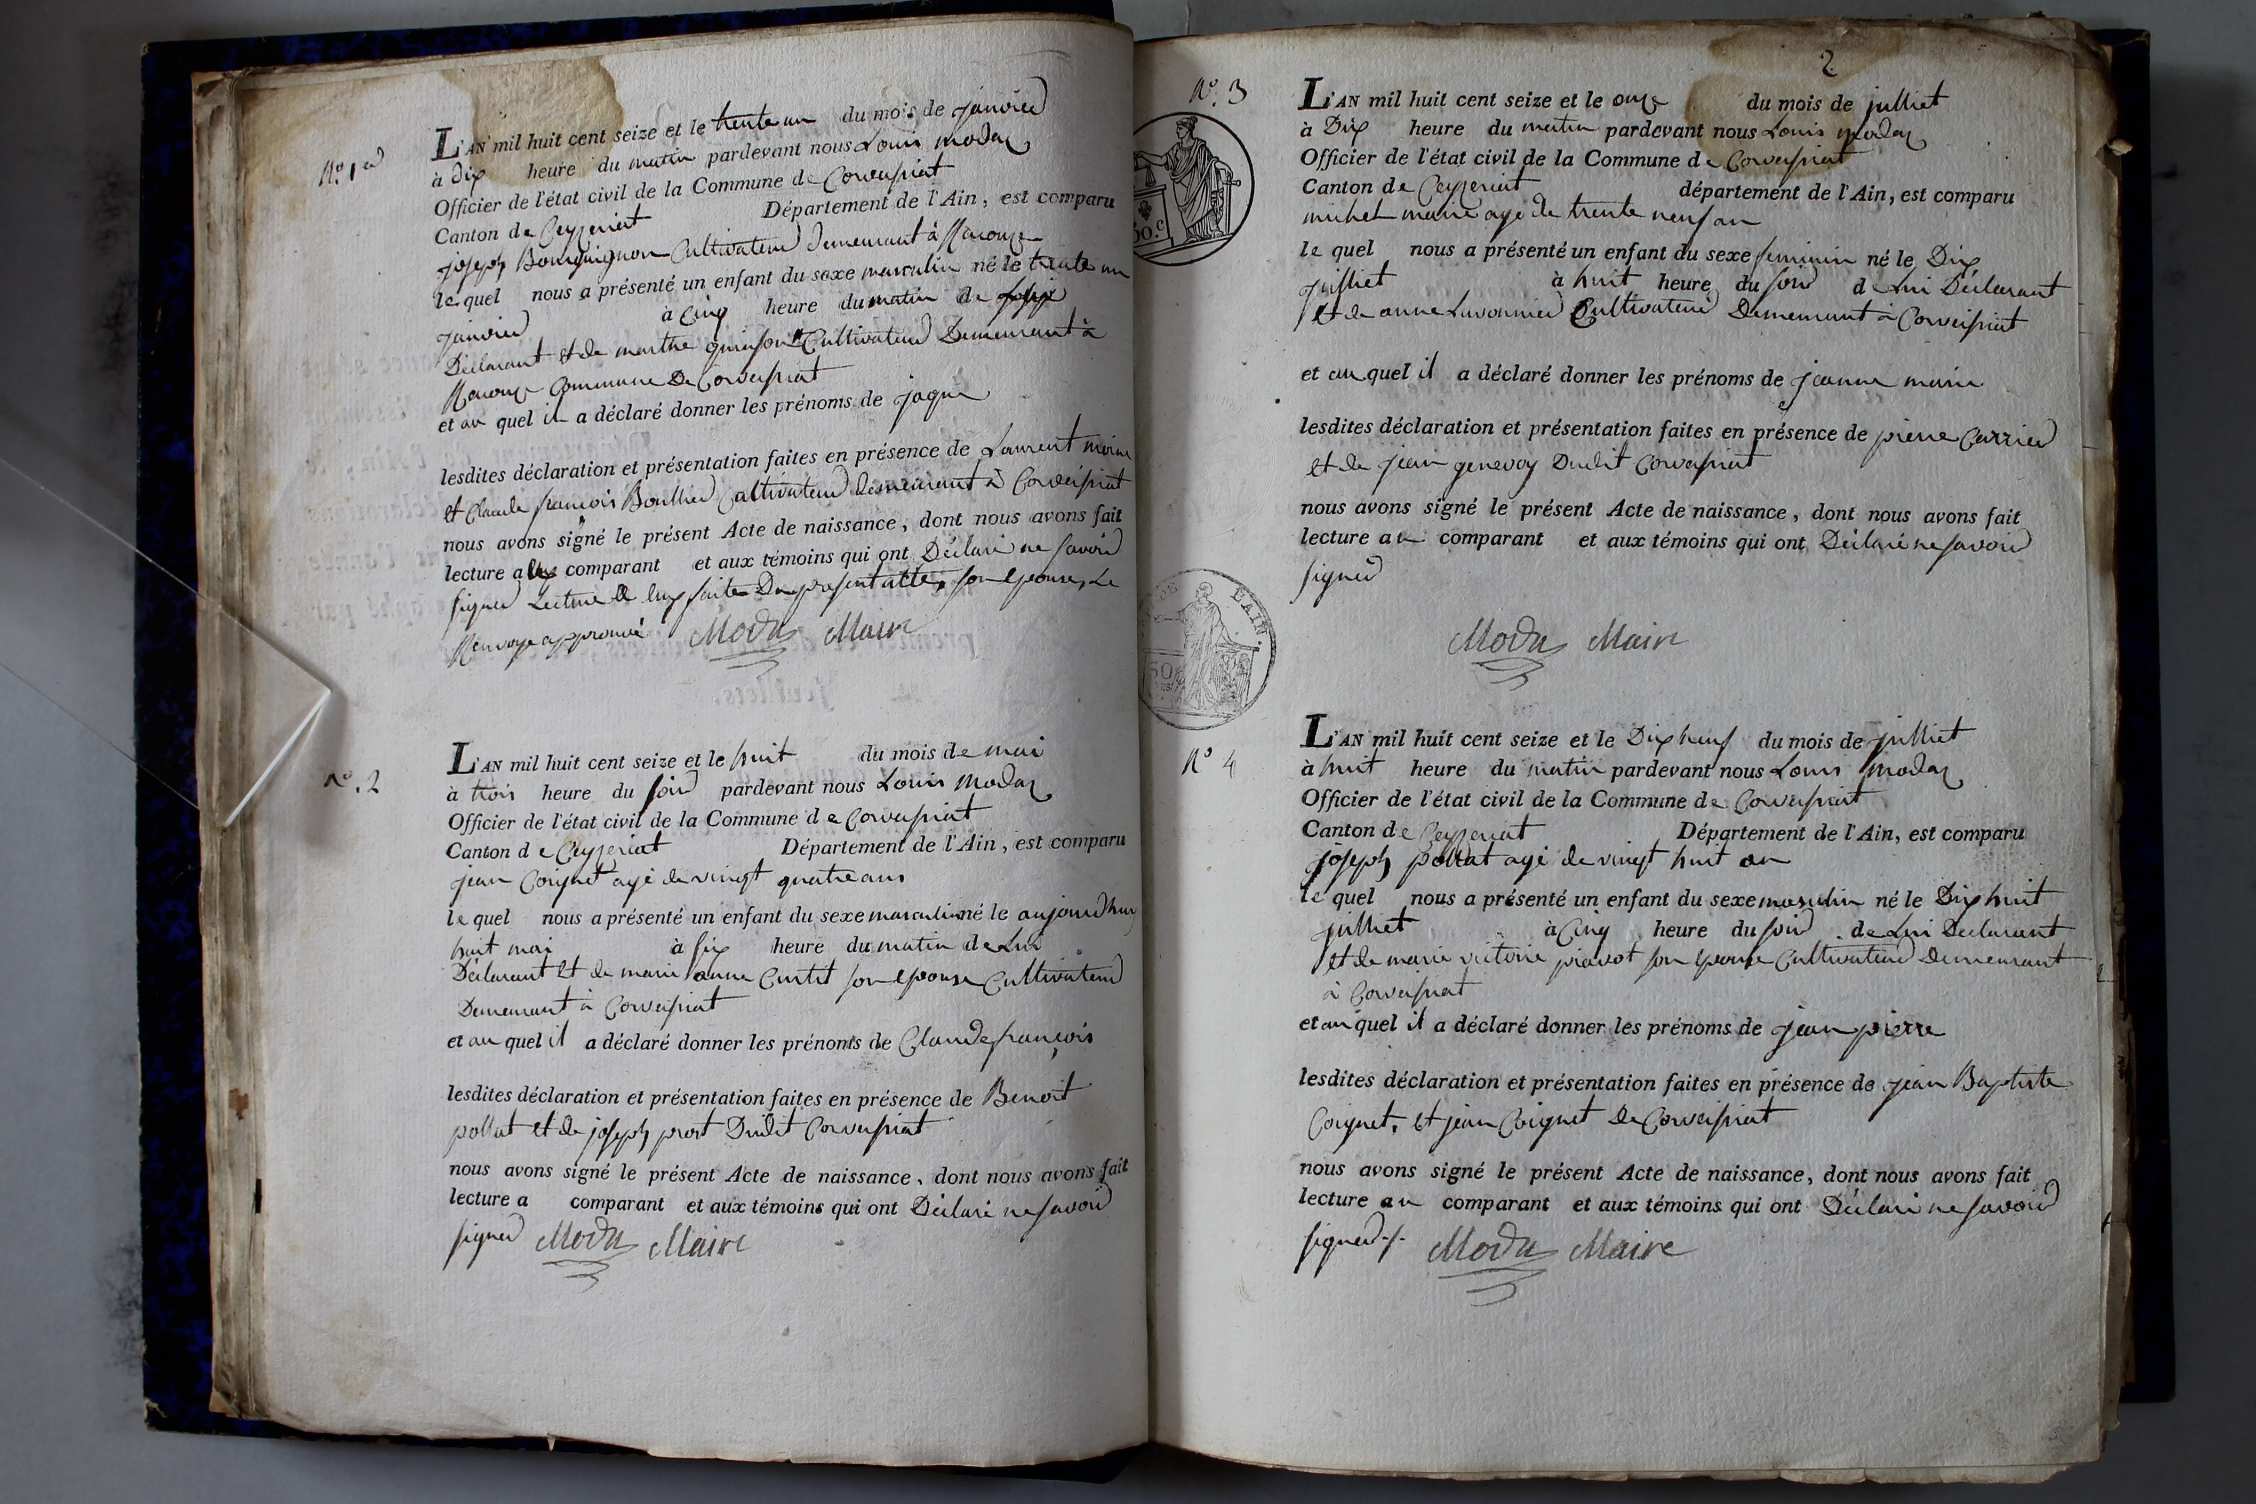 N.º 1er
L'AN mil huit cent seize et le trente un du mois de janvier
à dix heure du matin pardevant nous Louis modas
Officier de l'état civil de la Commune de Corveissiat
Canton de Ceyzeriat Département de l'Ain, est comparu
joseph Bourguignon Cultivateur demeurant à
le quel nous a présenté un enfant du sexe masculin né le trente un
janvier à Cinq heure du matin de
Déclarant et de marthe Cultivateur Demeurant à
Commune De Corveissiat
et au quel il a déclaré donner les prénoms de jaque
lesdites déclaration et présentation faites en présence de Laurent
et Claude françois Boullier Cultivateur demeurant à Corveissiat
nous avons signé le présent Acte de naissance, dont nous avons fait
lecture a comparant et aux témoins qui ont Déclaré ne savoir
signer Lecture à eux faite Du present acte, son epouse, Le
Renvoye approuvé Modas Maire
N.º 2
L'AN mil huit cent seize et le huit du mois de mai
à trois heure du soir pardevant nous Louis Modas
Officier de l'état civil de la Commune de Corveissiat
Canton de Ceyzeriat Département de l'Ain, est comparu
jean Coignet agé de vingt quatre ans
le quel nous a présenté un enfant du sexe masculin né le aujourdhuy
huit mai à six heure du matin de Lui
Déclarant et de marie anne Curtit son epouse Cultivateur
Demeurant à Corveissiat
et au quel il a déclaré donner les prénoms de Claude françois
lesdites déclaration et présentation faites en présence de Benoit
pollat et de joseph prost Dudit Corveissiat
nous avons signé le présent Acte de naissance, dont nous avons fait
lecture a comparant et aux témoins qui ont Déclaré ne savoir
signer Modas Maire
2
N.º 3
L'AN mil huit cent seize et le onze du mois de julliet
à Dix heure du matin pardevant nous Louis modas
Officier de l'état civil de la Commune de Corveissiat
Canton de Ceyzeriat département de l'Ain, est comparu
michel maire agé de trente neuf an
le quel nous a présenté un enfant du sexe feminin né le Dix
julliet à huit heure du soir de Lui Déclarant
et de anne Cultivateur Demeurant à Corveissiat
et au quel il a déclaré donner les prénoms de jeanne marie
lesdites déclaration et présentation faites en présence de pierre Carrier
et de jean genevoy Dudit Corveissiat
nous avons signé le présent Acte de naissance, dont nous avons fait
lecture au comparant et aux témoins qui ont Déclaré ne savoir
signer
Modas Maire
N.º 4
L'AN mil huit cent seize et le Dix neuf du mois de julliet
à huit heure du matin pardevant nous Louis modas
Officier de l'état civil de la Commune de Corveissiat
Canton de Ceyzeriat Département de l'Ain, est comparu
joseph pollat agé de vingt huit an
le quel nous a présenté un enfant du sexe masculin né le Dix huit
julliet à Cinq heure du soir de Lui Declarant
et de marie victoire piavot son epouse Cultivateur Demeurant
à Corveissiat
et au quel il a déclaré donner les prénoms de jean pierre
lesdites déclaration et présentation faites en présence de jean Baptiste
Coignet, et jean Coignet De Corveissiat
nous avons signé le présent Acte de naissance, dont nous avons fait
lecture au comparant et aux témoins qui ont Déclaré ne savoir
signer./. Modas Maire